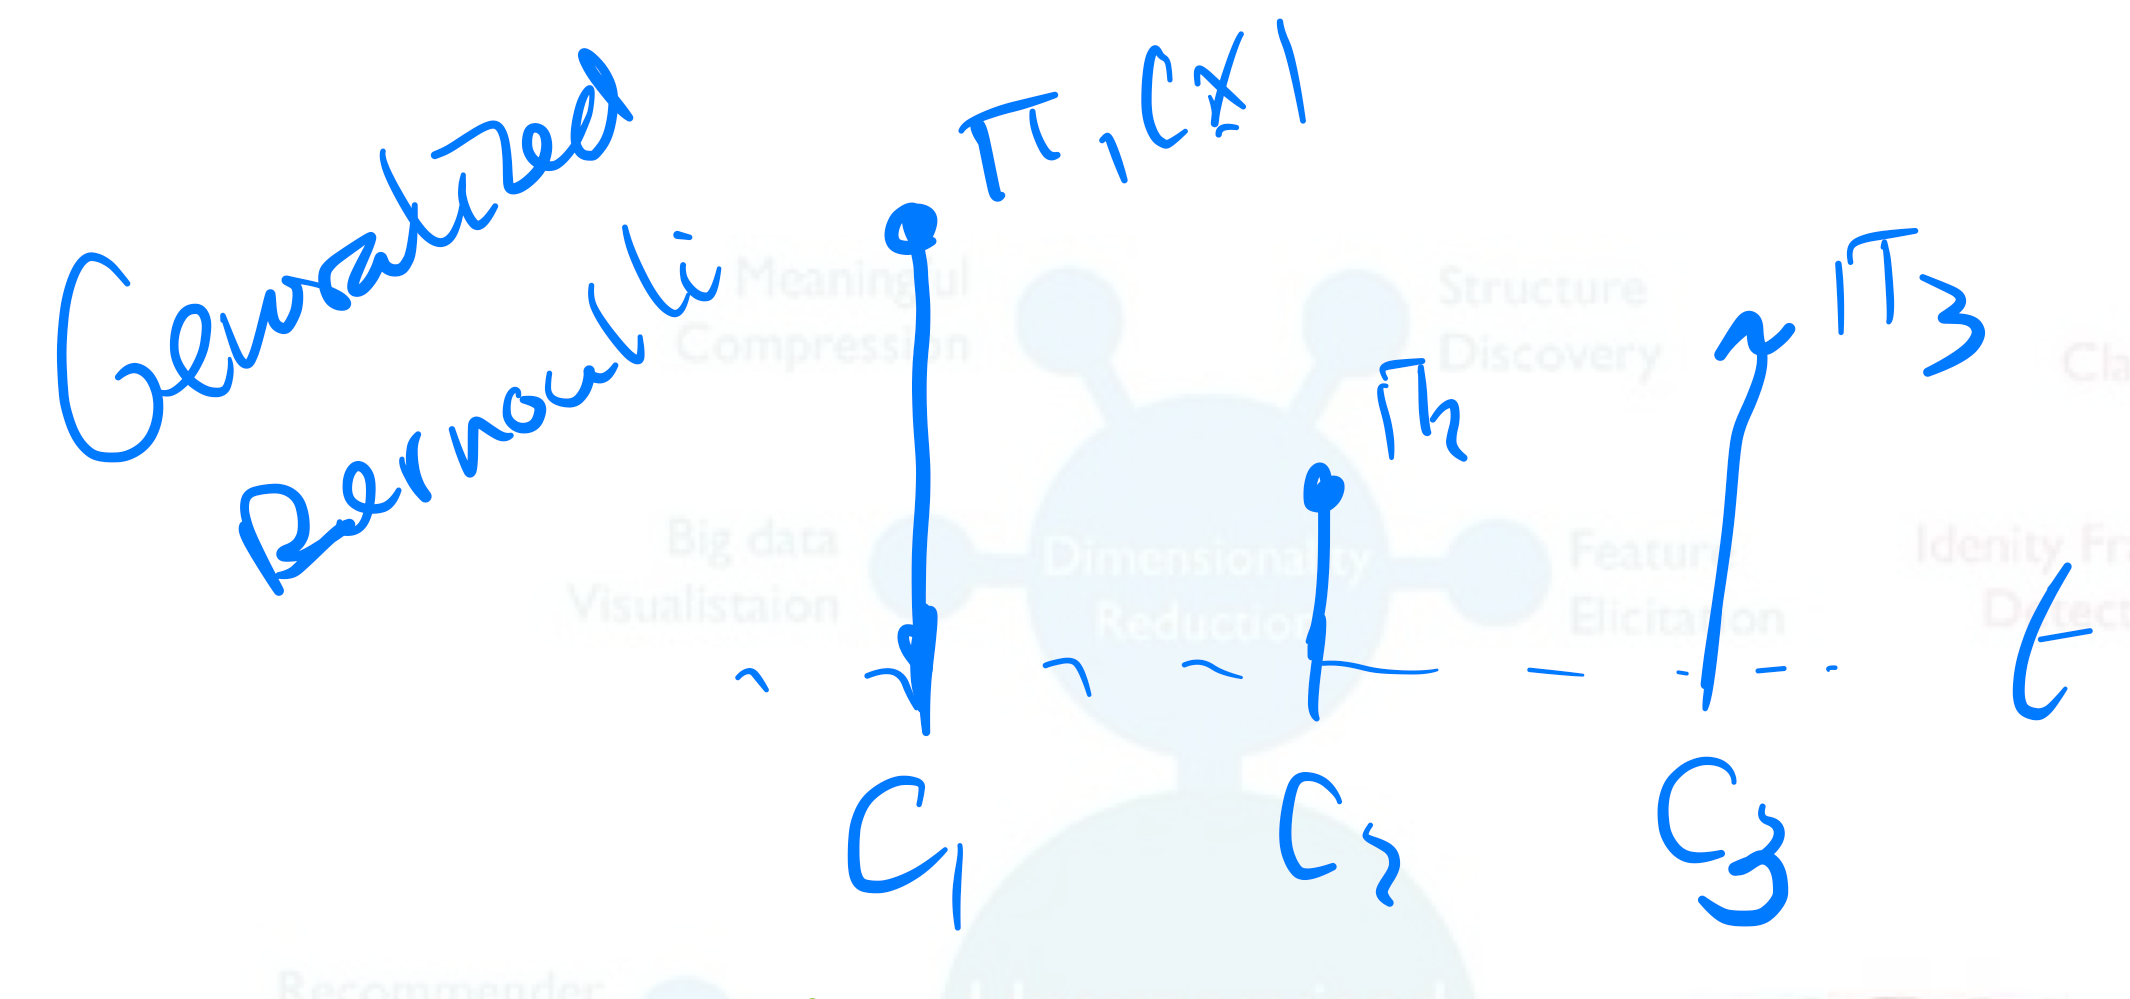 Generalized
Bernoulli
π₁(x)
π₂
π₃
t
C₁
C₂
C₃
Meaningful
Compression
Structure
Discovery
Big data
Visualistaion
Dimensionality
Reduction
Feature
Elicitation
Idenity Fra
Detect
Cla
Recommender